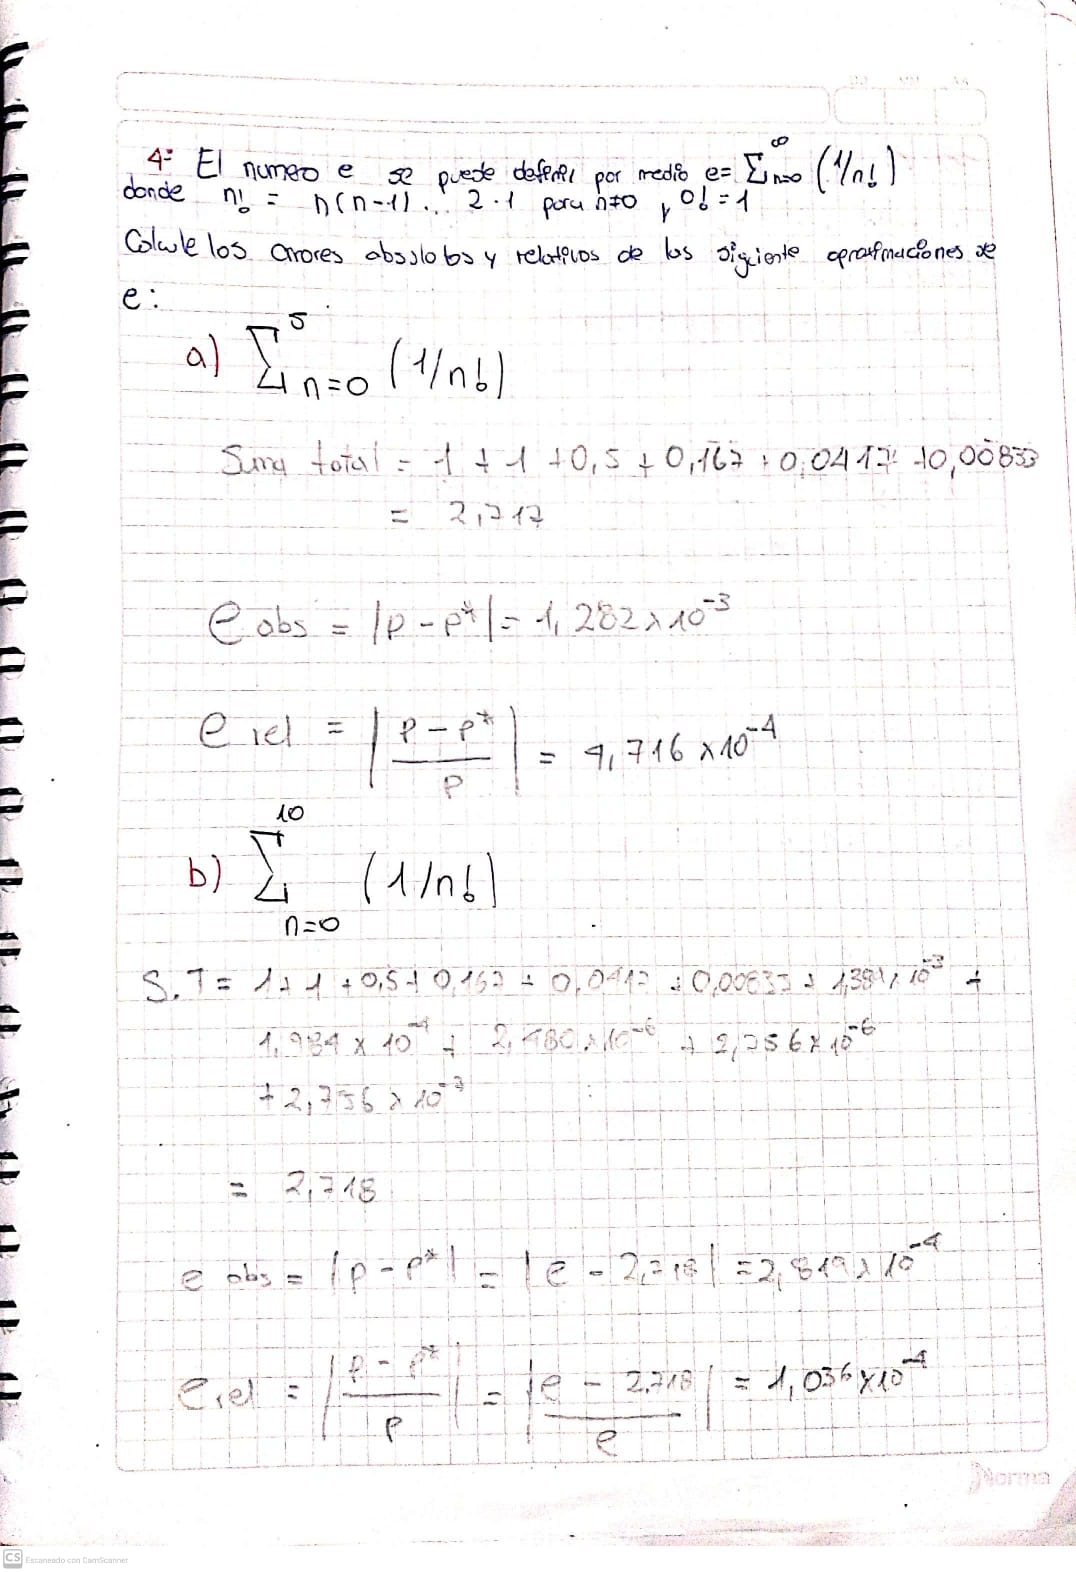 4= El numero e se puede definir por medio e= Σ∞n=0 (1/n!)
donde n! = n(n-1)... 2·1 para n≠0 y 0! = 1
Calcule los errores absolutos y relativos de las siguiente aproximaciones de
e:
a) Σ5n=0 (1/n!)
Suma total = 1 + 1 + 0,5 + 0,167 + 0,0417 + 0,00833
= 2,717
e abs = |p - p*| = 1,282 x 10^-3
e rel = |(p - p*)/p| = 4,716 x 10^-4
b) Σ10n=0 (1/n!)
S.T = 1 + 1 + 0,5 + 0,167 + 0,0417 + 0,00833 + 1,389 x 10^-3 +
1,984 x 10^-4 + 2,480 x 10^-6 + 2,756 x 10^-6
+ 2,756 x 10^-7
= 2,718
e abs = |p - p*| = |e - 2,718| = 2,819 x 10^-4
e rel = |(p - p*)/p| = |(e - 2,718)/e| = 1,036 x 10^-4
Norma
CS Escaneado con CamScanner